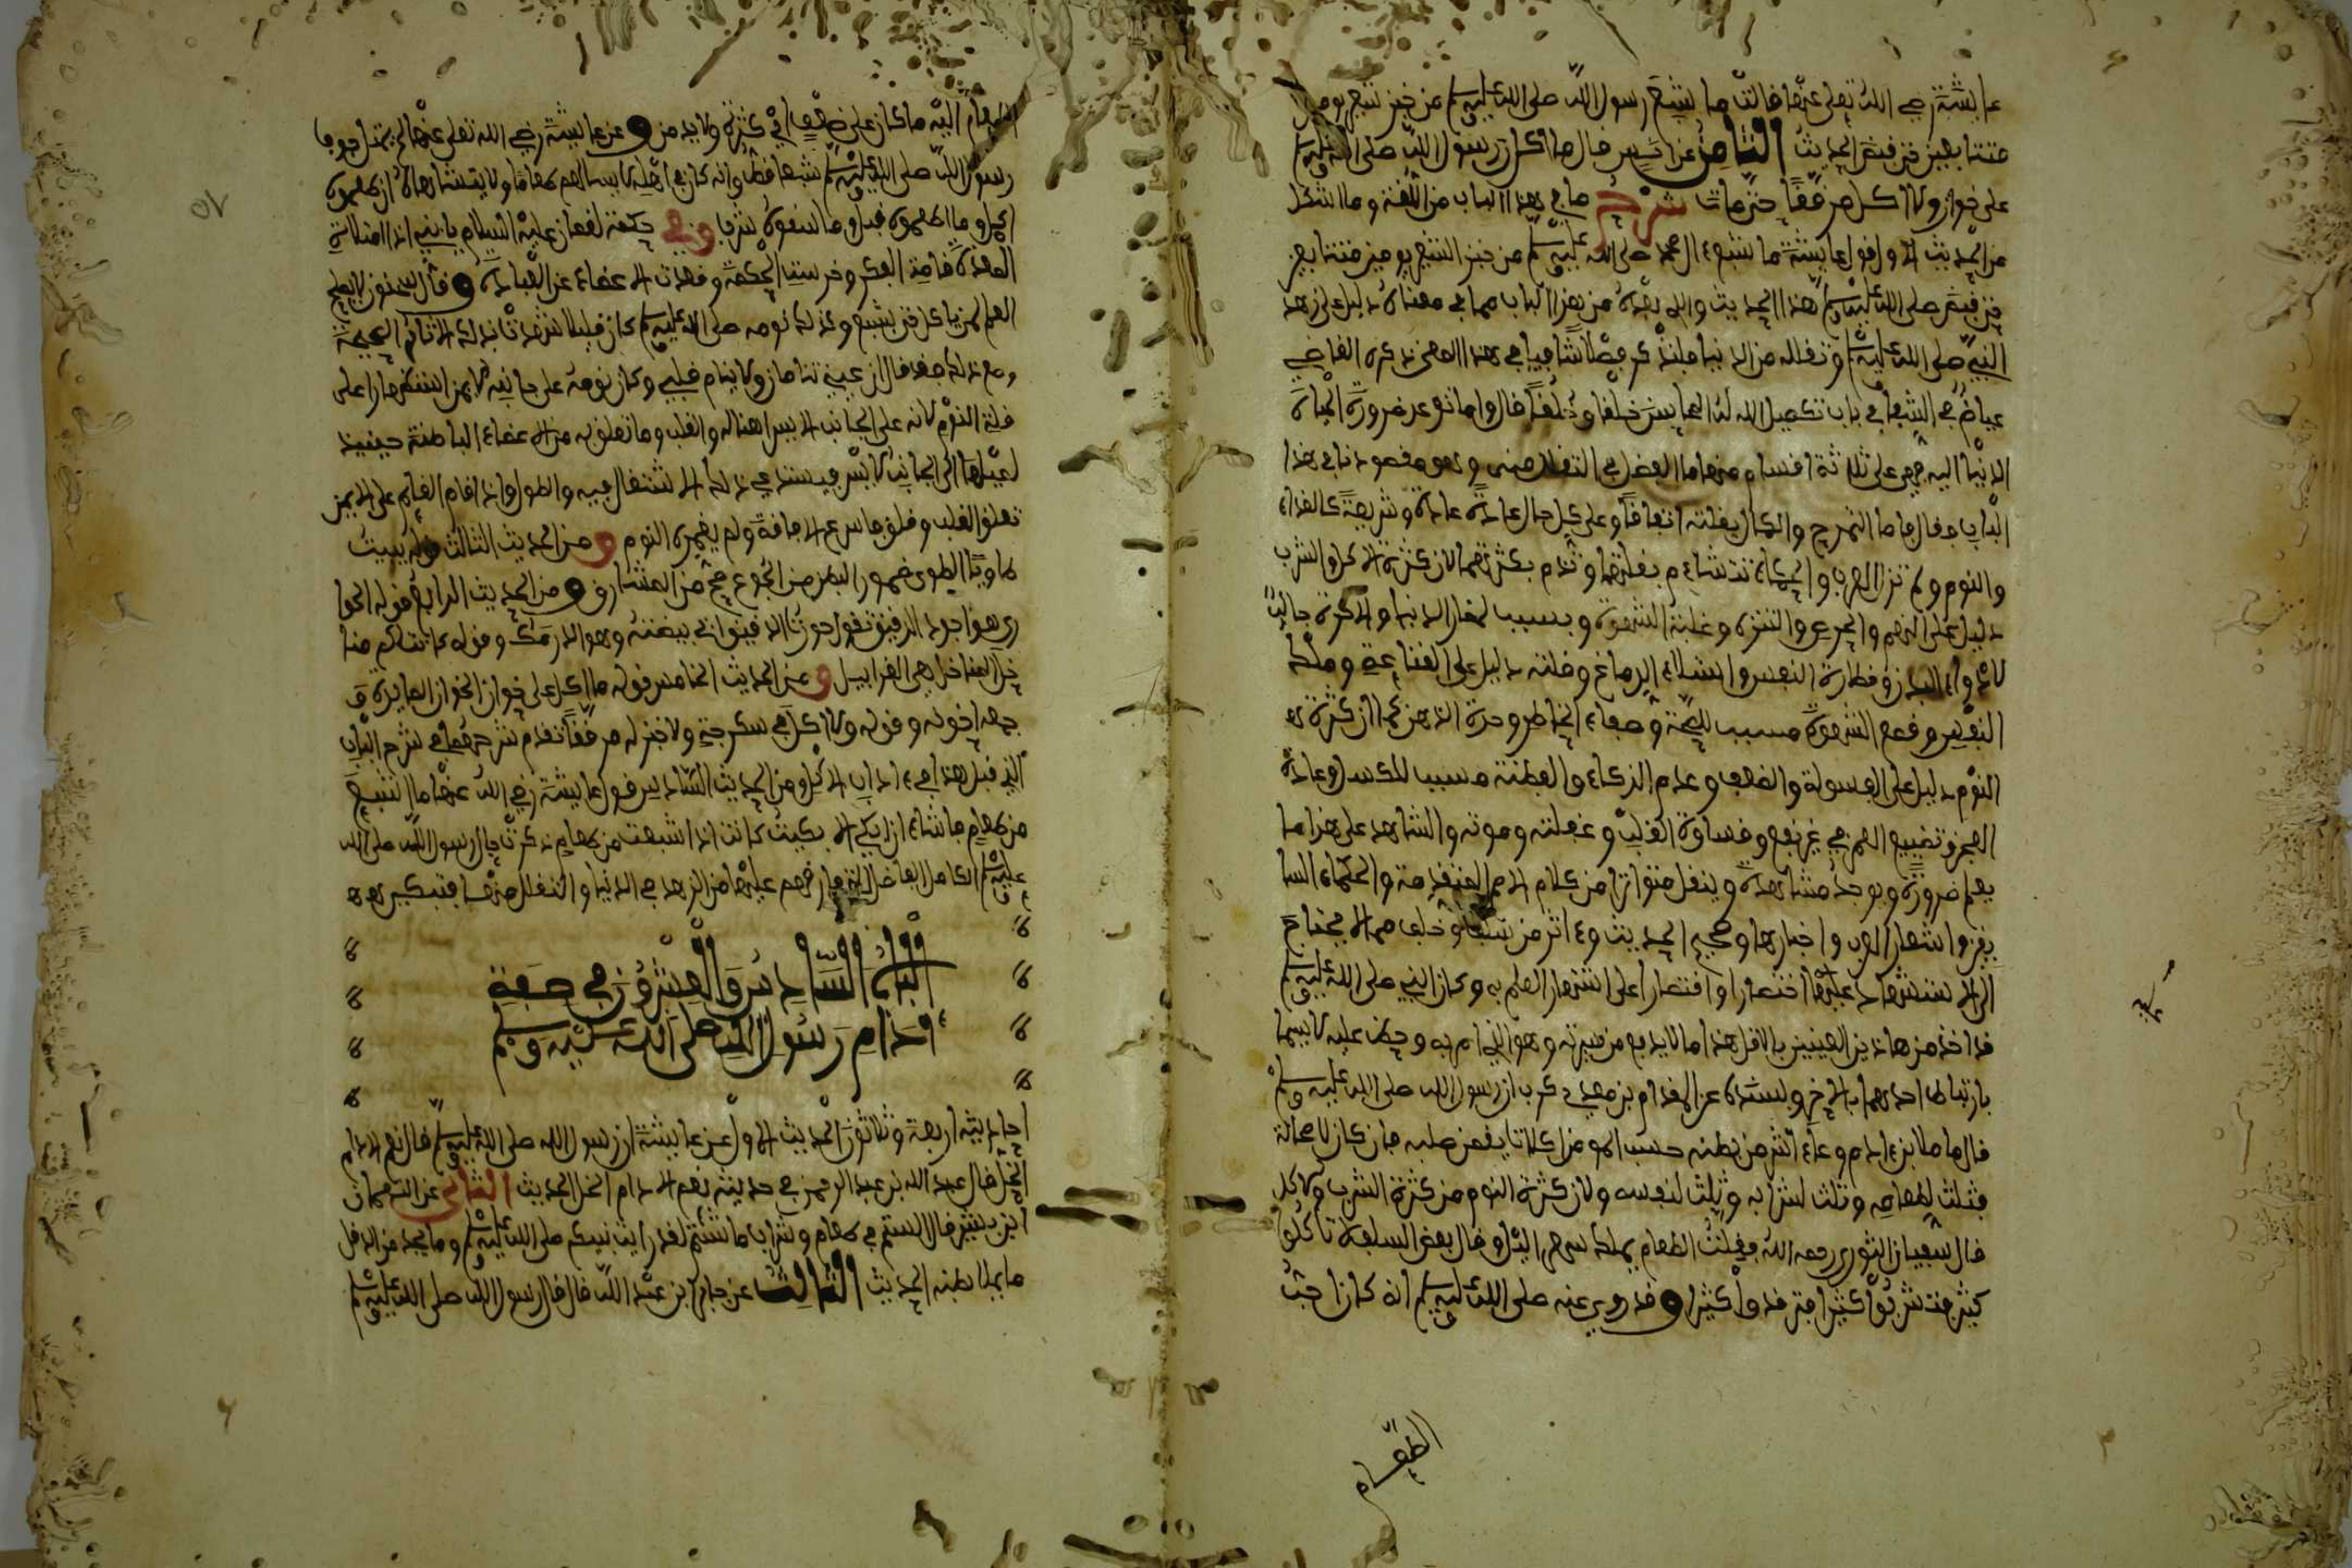 عايشة رضي الله تعلى عنها فالت ما شبع رسول الله صلى الله عليه وسلم من خبز شعير يومين
متتابعين حتى فبض الحديث الثامن عن انس فال ما اكل رسول الله صلى الله عليه وسلم
على خوان ولا اكل مرففا حتى مات شرح ما في هذا الباب من اللغة وما اشكل
من الحديث الاول فول عايشة ما شبع ءال محمد صلى الله عليه وسلم من خبز الشعير يومين متتابعين
حتى فبض صلى الله عليه وسلم هذا الحديث والذي بعده من هذا الباب مما في معناه دليل على زهد
النبي صلى الله عليه وسلم وتفلله من الدنيا ولنذكر فصلا شافيا في هذا المعنى ذكره الفاضي
عياض في الشفا في باب تكميل الله له المحاسن خلفا وخلفا فال واما تدعو ضرورة الحياة
الدنيا اليه فهي على ثلاثة افسام منها ما الفضل في التفلل منه وهو مفصودنا في هذا
الباب فال فاما التمدح والكمال بفلته اتفافا وعلى كل حال عادة وشريعة كالغذاء
والنوم ولم تزل العرب والحكماء تتمادح بفلتهما وتذم بكثرتهما لان كثرة الاكل والشرب
دليل على النهم والحرص والشره وغلبة الشهوة ومسبب لمضار الدنيا والاخرة جالب
لادواء الجسد وخثارة النفس وامتلاء الدماغ وفلته دليل على الفناعة وملك
النفس وفمع الشهوة مسبب للصحة وصفاء الخاطر وحدة الذهن كما ان كثرة
النوم دليل على الفسولة والضعف وعدم الذكاء والفطنة مسبب للكسل وعادة
العجز وتضييع العمر في غير نفع وفساوة الفلب وغفلته وموته والشاهد على هذا ما
يعلم ضرورة ويوجد مشاهدة وينفل متواترا من كلام الامم المتفدمة والحكماء السا
بفين واشعار العرب واخبارها وصحيح الحديث وءاثار من سلف وخلف مما لا يحتاج
الى الاستشهاد عليه اختصارا وافتصارا على اشتهار العلم به وكان النبي صلى الله عليه وسلم
فد اخذ من هاذين الفنين بالافل هذا ما لا يدفع من سيرته وهو الذي امر به وحض عليه لا سيما
بارتباط احدهما بالاخر وبسنده عن المفدام بن معدي كرب ان رسول الله صلى الله عليه وسلم
فال ما ملا ابن ءادم وعاء شرا من بطنه حسب المومن اكلات يفمن صلبه فان كان لا محالة
فثلث لطعامه وثلث لشرابه وثلث لنفسه ولان كثرة النوم من كثرة الشرب والاكل
فال سفيان الثوري رحمه الله بفلة الطعام يملك سهر الليل وفال بعض السلف لا تاكلوا
كثيرا فتشربوا كثيرا فترفدوا كثيرا و فد روي عنه صلى الله عليه وسلم انه كان احب
الطعام
الطعام اليه ما كان على ضفف اي كثرة الايدي و عن عايشة رضي الله تعلى عنها لم يمتل جوف
رسول الله صلى الله عليه وسلم شبعا فط وانه كان في اهله لا يسالهم طعاما ولا يتشهاه ان اطعموه
اكل وما اطعموه فبل وما سفوه شرب وفي حكمة لفمان عليه السلام يا بني اذا امتلات
المعدة نامت الفكرة وخرست الحكمة وفعدت الاعضاء عن العبادة و فال سحنون لا يصلح
العلم لمن ياكل حتى يشبع وكذلك نومه صلى الله عليه وسلم كان فليلا شهدت بذلك الاثار الصحيحة
ومع ذلك ففد فال ان عيني تنامان ولا ينام فلبي وكان نومه على جانبه الايمن استظهارا على
فلة النوم لانه على الجانب الايسر اهنا لهدو الفلب وما تعلق به من الاعضاء الباطنة حينيذ
لميلها الى الجانب الايسر فيستدعي ذلك الاستثفال فيه والطول واذا نام النايم على الايمن
تعلق الفلب وفلق فاسرع الافافة ولم يغمره النوم ومن الحديث الثالث فوله يبيت
طاويا الطوى ضمور البطن من الجوع صح من المشارق و من الحديث الرابع فوله الحوا
رى هو اجود الدفيق تفول حورت الدفيق اي بيضته وهو الدرمك وفوله كانت لكم منا
خل المناخل هي الغرابيل ومن الحديث الخامس فوله ما اكل على خوان الخوان المايدة و
جمعه اخونة وفوله ولا اكل في سكرجة ولا خبز له مرفف تفدم شرحهما في شرح الباب
الذي فبل هذا في ءاداب الاكل ومن الحديث السادس فول عايشة رضي الله عنها ما اشبع
من طعام فاشاء ان ابكي الا بكيت كانت اذا شبعت من طعام ذكرت حال رسول الله صلى الله
عليه وسلم الكامل الفاضل التي فارفهم عليها من الزهد في الدنيا والتفلل منها فتبكي
الباب السادس والعشرون في صفة
ءادام رسول الله صلى الله عليه وسلم
احاديثه اربعة وثلاثون الحديث الاول عن عايشة ان رسول الله صلى الله عليه وسلم فال نعم الادام
الخل فال عبد الله بن عبد الرحمن في حديثه نعم الادام الخل الحديث الثاني عن النعمان
ابن بشير فال الستم في طعام وشراب ما شئتم لفد رايت نبيكم صلى الله عليه وسلم وما يجد من الدفل
ما يملا بطنه الحديث الثالث عن جابر بن عبد الله فال فال رسول الله صلى الله عليه وسلم